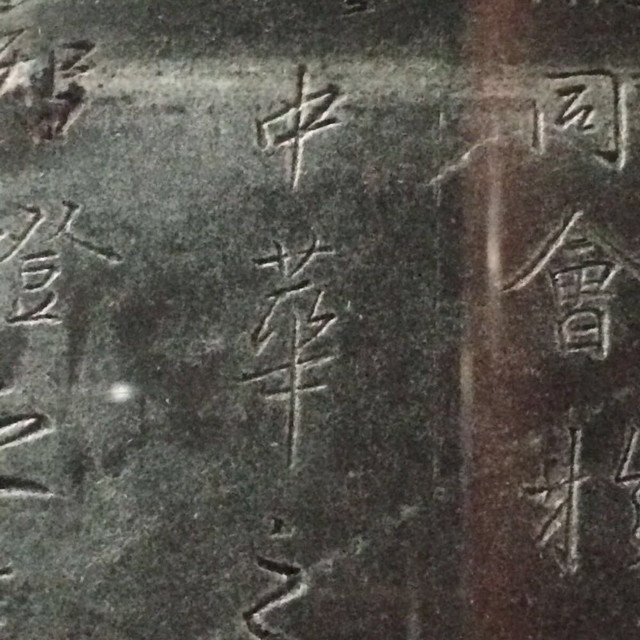 同會
中華之
登之